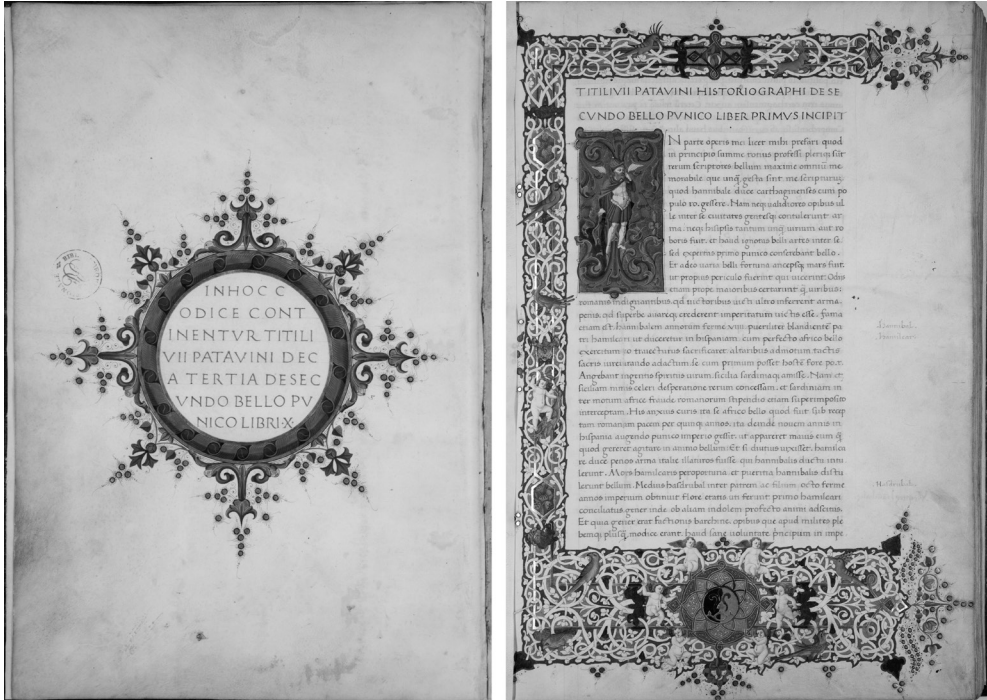 INHOC C
ODICE CONT
INENTVR TITI LI
VII PATAVINI DEC
A TERTIA DESEC
VNDO BELLO PV
NICO LIBRI·X·
TITILIVII PATAVINI HISTORIOGRAPHI DE SE
CVNDO BELLO PVNICO LIBER PRIMVS INCIPIT
N parte operis mei licet mihi prefari quod
in principio summe totius professi
rerum scriptores bellum maxime omniũ me
morabile que unq̃ gesta sint me scripturũ
quod hannibale duce carthaginenses cum po
pulo ro. gessere. Nam neq; ualidiores opibus ul
le inter se ciuitates gentesq; contulerunt ar
ma. neq; hisipsis tantum unq̃ uirium aut ro
boris fuit. et haud ignotas belli artes inter se.
sed expertas primo punico conserebant bello.
Et adeo uaria belli fortuna ancepsq; mars fuit.
ut propius periculo fuerint qui uicerint. Odiis
etiam prope maioribus certarunt q̃ uiribus.
romanis indignantibus. qd uictoribus uicti ultro inferrent arma.
penis. qd superbe auareq; crederent imperitatum uictis esse. fama
etiam est. hannibalem annorum ferme .viiii. pueriliter blandientẽ pa
tri hamilcari ut duceretur in hispaniam. cum perfecto africo bello
exercitum
sacris iureiurando adactum se cum primum posset hostẽ fore po.r.
Angebant ingentis spiritus uirum. sicilia sardiniaq; amisse. Nam et
siciliam nimis celeri desperatione rerum concessam. et sardiniam in
ter motum africe fraude romanorum stipendio etiam superimposito
interceptam. His anxius curis ita se africo bello quod fuit sub recep
tam romanam pacem per quinq; annos. ita deinde nouem annis in
hispania augendo punico imperio gessit. ut appareret maius eum q̃
quod gereret agitare in animo bellum. Et si diutius uixisset. hamilca
re duce penos arma italie illaturos fuisse. qui hannibalis ductu intu
lerunt. Mors hamilcaris peroportuna. et pueritia hannibalis distu
lerunt bellum. Medius hasdrubal inter patrem ac filium. octo ferme
annos imperium obtinuit flore etatis uti ferunt primo hamilcari
conciliatus gener inde ob aliam indolem profecto animi adscitus.
Et quia gener erat factionis barchine. opibus que apud milites ple
bemq; plusq̃ modice erant. haud sane uoluntate principum in impe